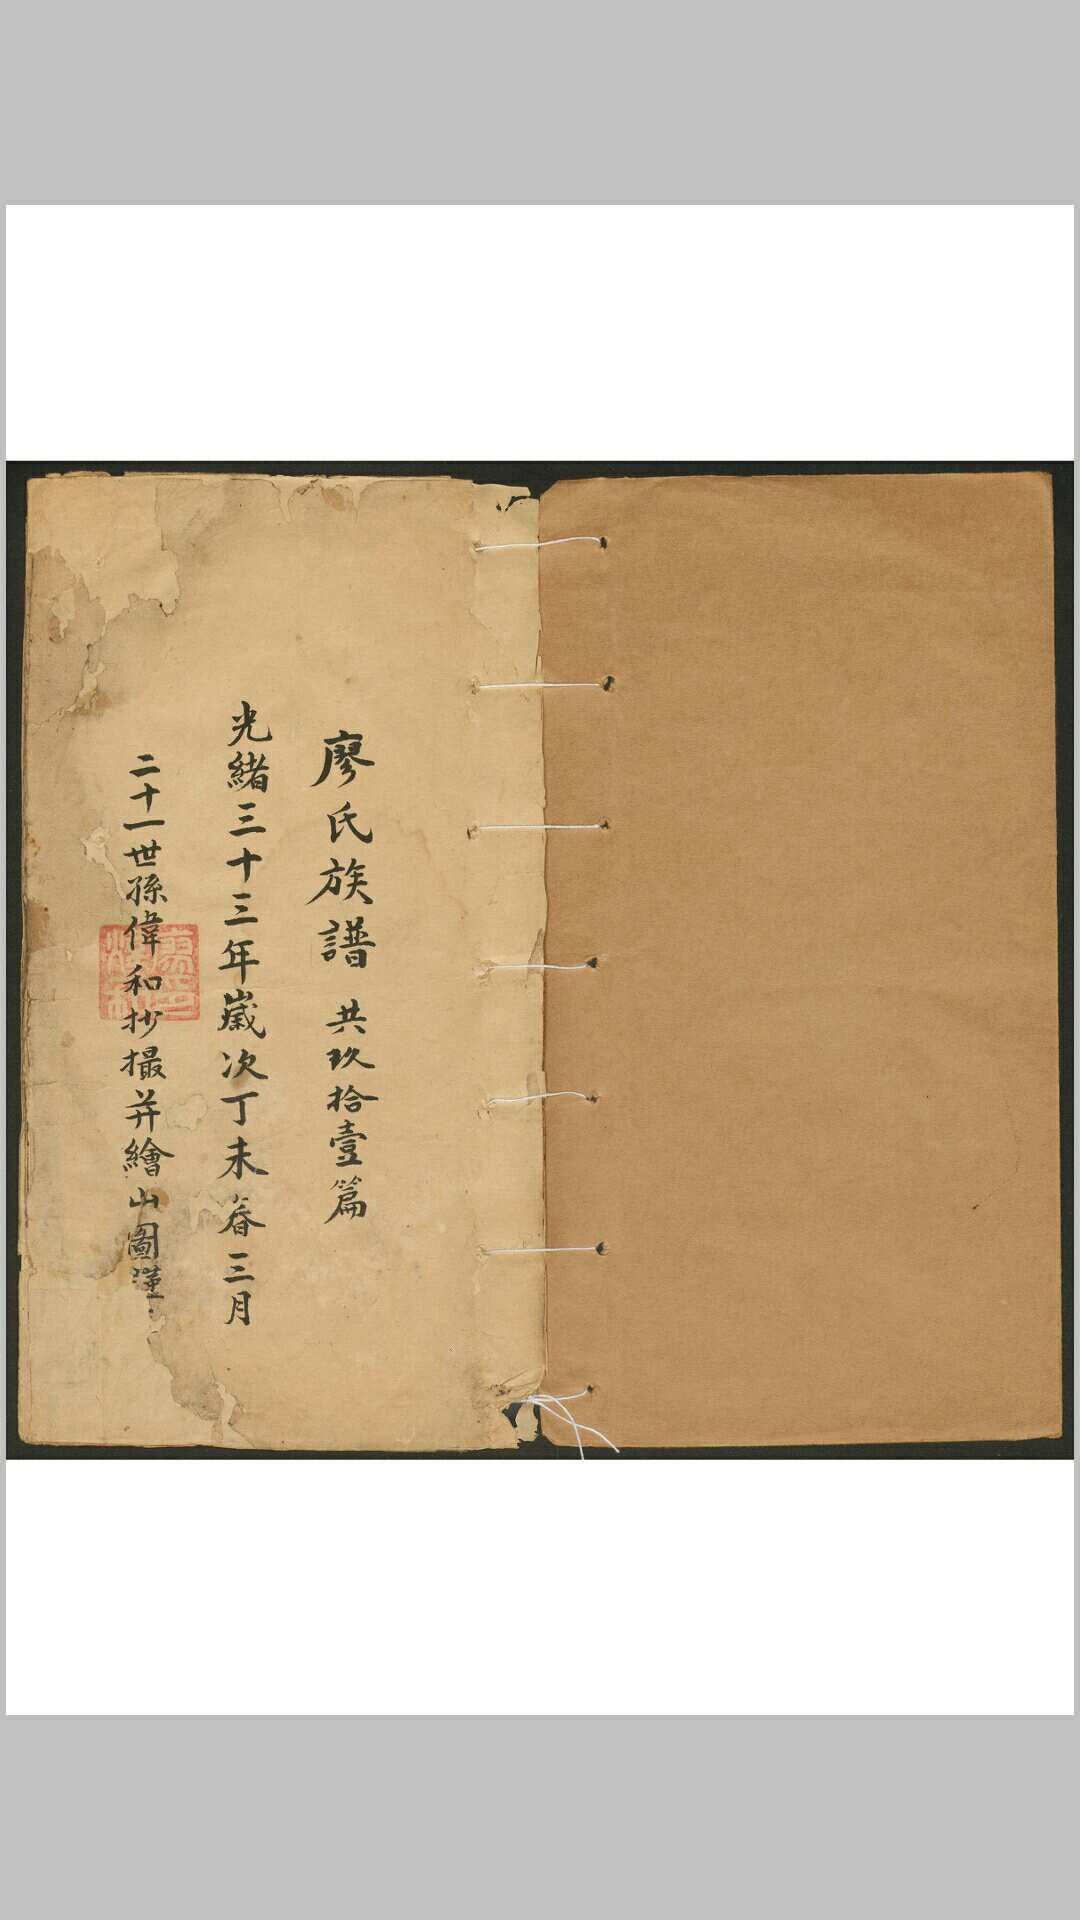 廖氏族譜 共玖拾壹篇
光緒三十三年歲次丁未春三月
二十一世孫偉和抄撮并繪山圖